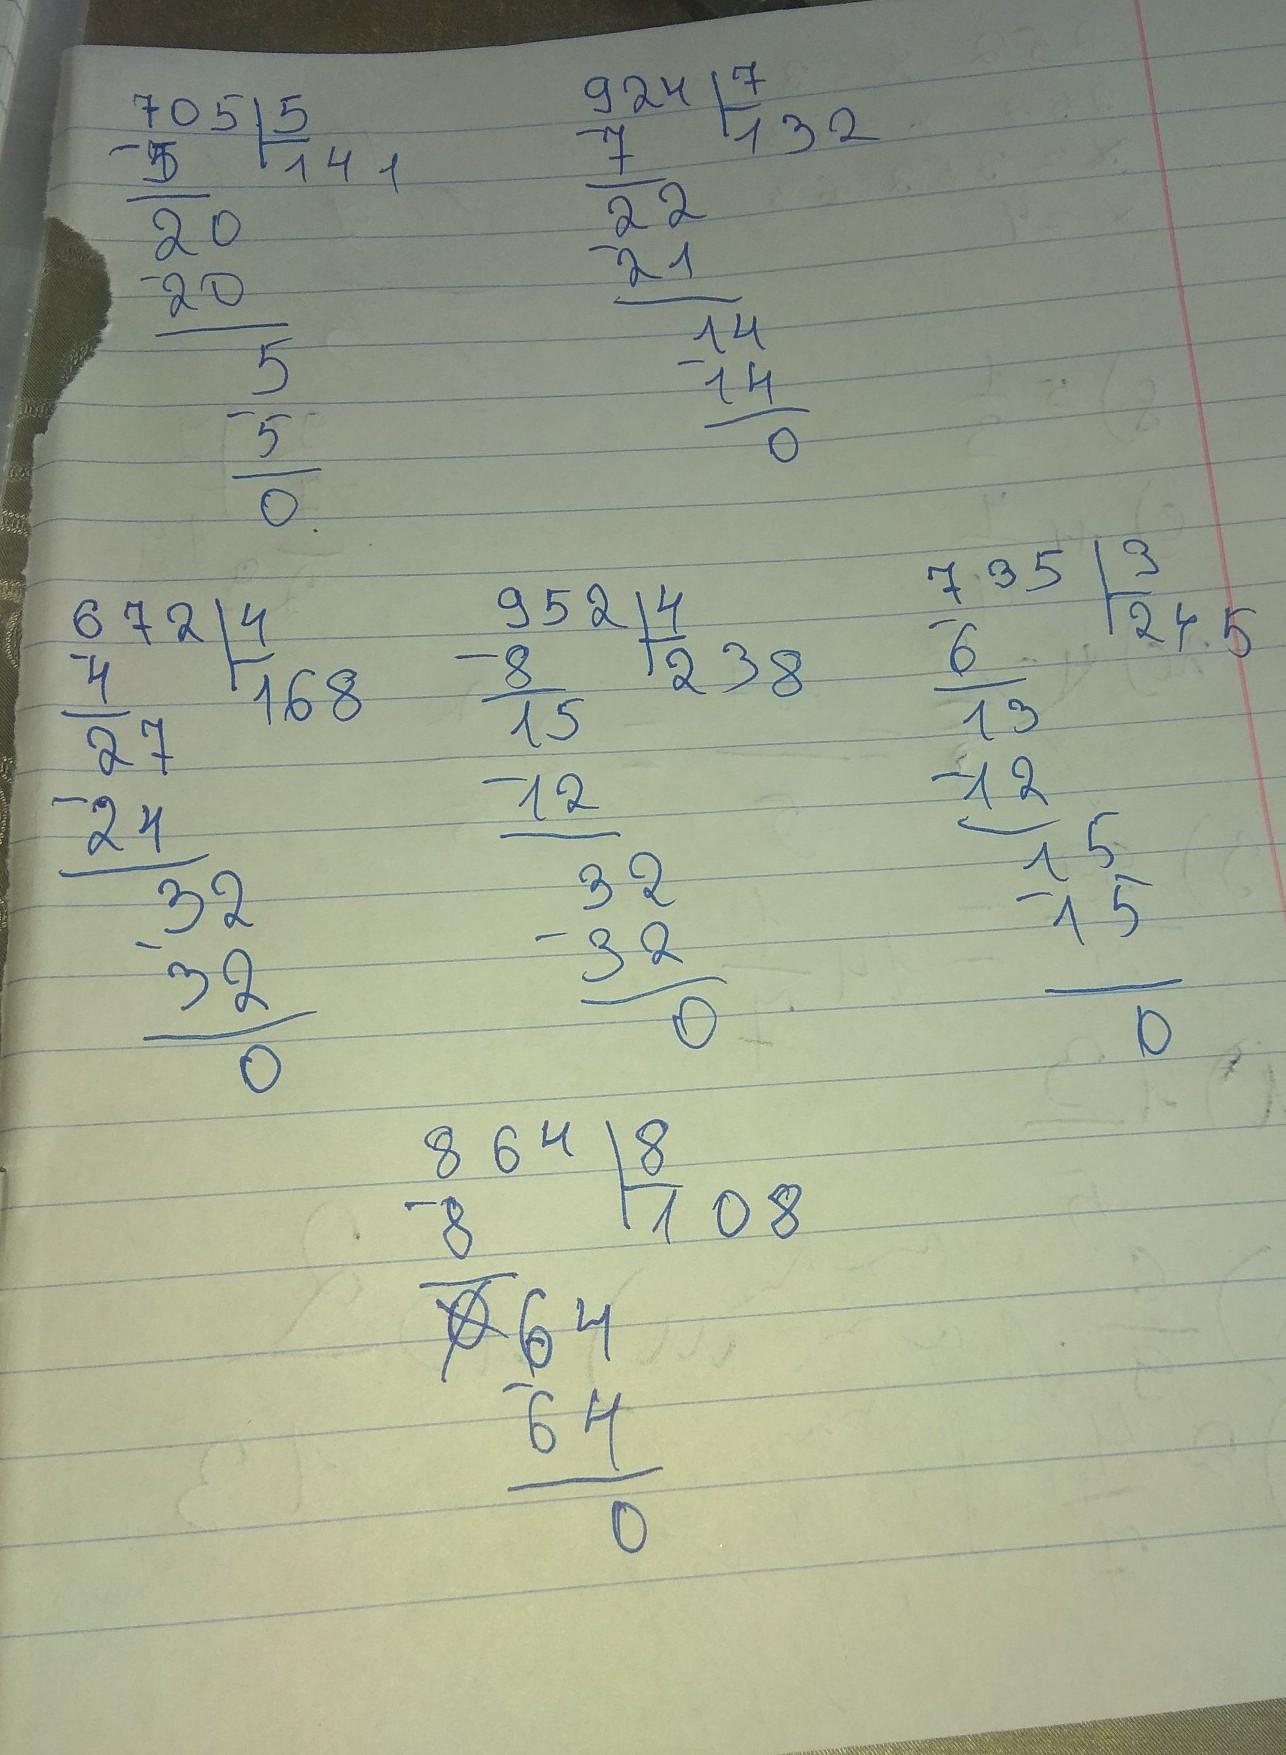 705 5
-5 141
20
-20
5
-5
0
924 7
-7 132
22
-21
14
-14
0
672 4
-4 168
27
-24
32
-32
0
952 4
-8 238
15
-12
32
-32
0
735 3
-6 245
13
-12
15
-15
0
864 8
-8 108
064
-64
0